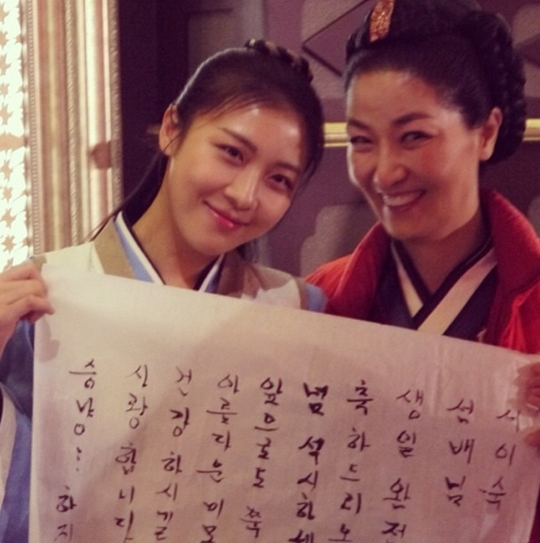 서이숙
선배님
생일 완전
축하드리
넘 섹시하세
앞으로도 쭉
아름다운 미모
건강하시길
사랑합니다
승냥이.. 하지